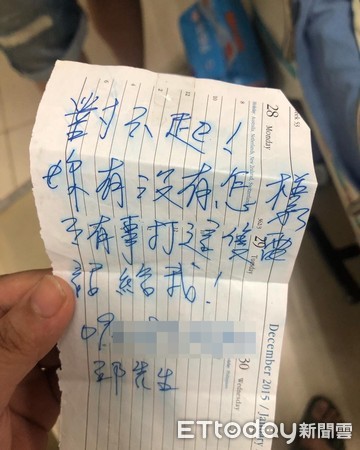 對不起!
妳有沒有怎樣
有事打這隻電
話給我!
09
先生
28 Monday
29 Tuesday
30 Wednesday
December 2015 /
ETtoday新聞雲